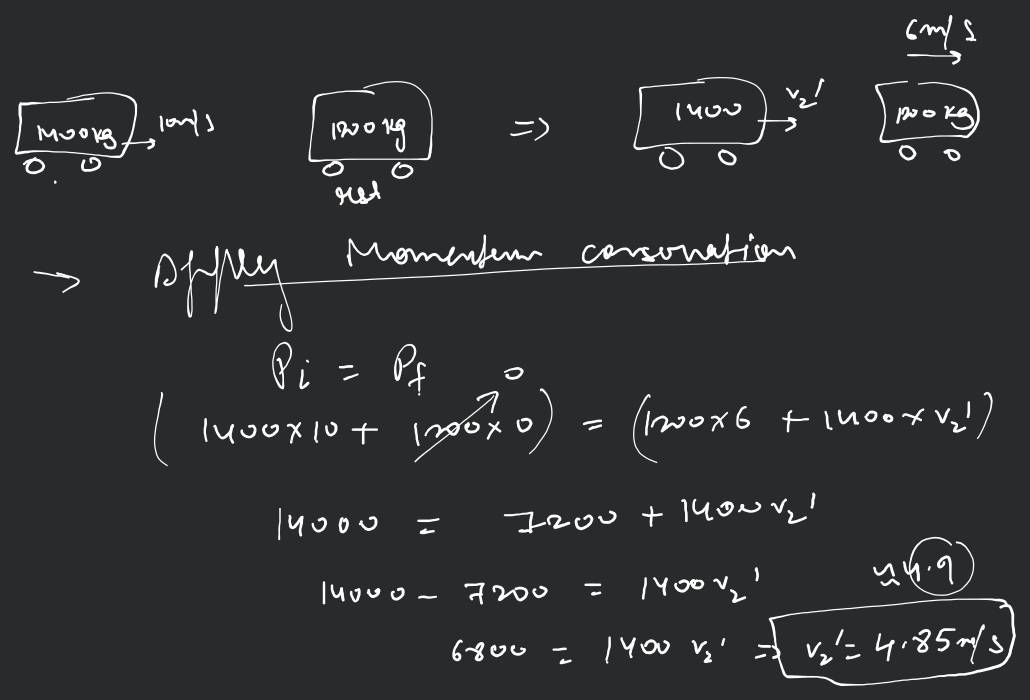 6m/s
1400kg 10m/s 1200kg => 1400 v₂' 1200kg
rest
→ Apply Momentum conservation
Pi = Pf
(1400×10 + 1200×0) 0 = (1200×6 + 1400×v₂')
14000 = 7200 + 1400 v₂'
14000 - 7200 = 1400 v₂' ≈4.9
6800 = 1400 v₂' => v₂' = 4.85 m/s